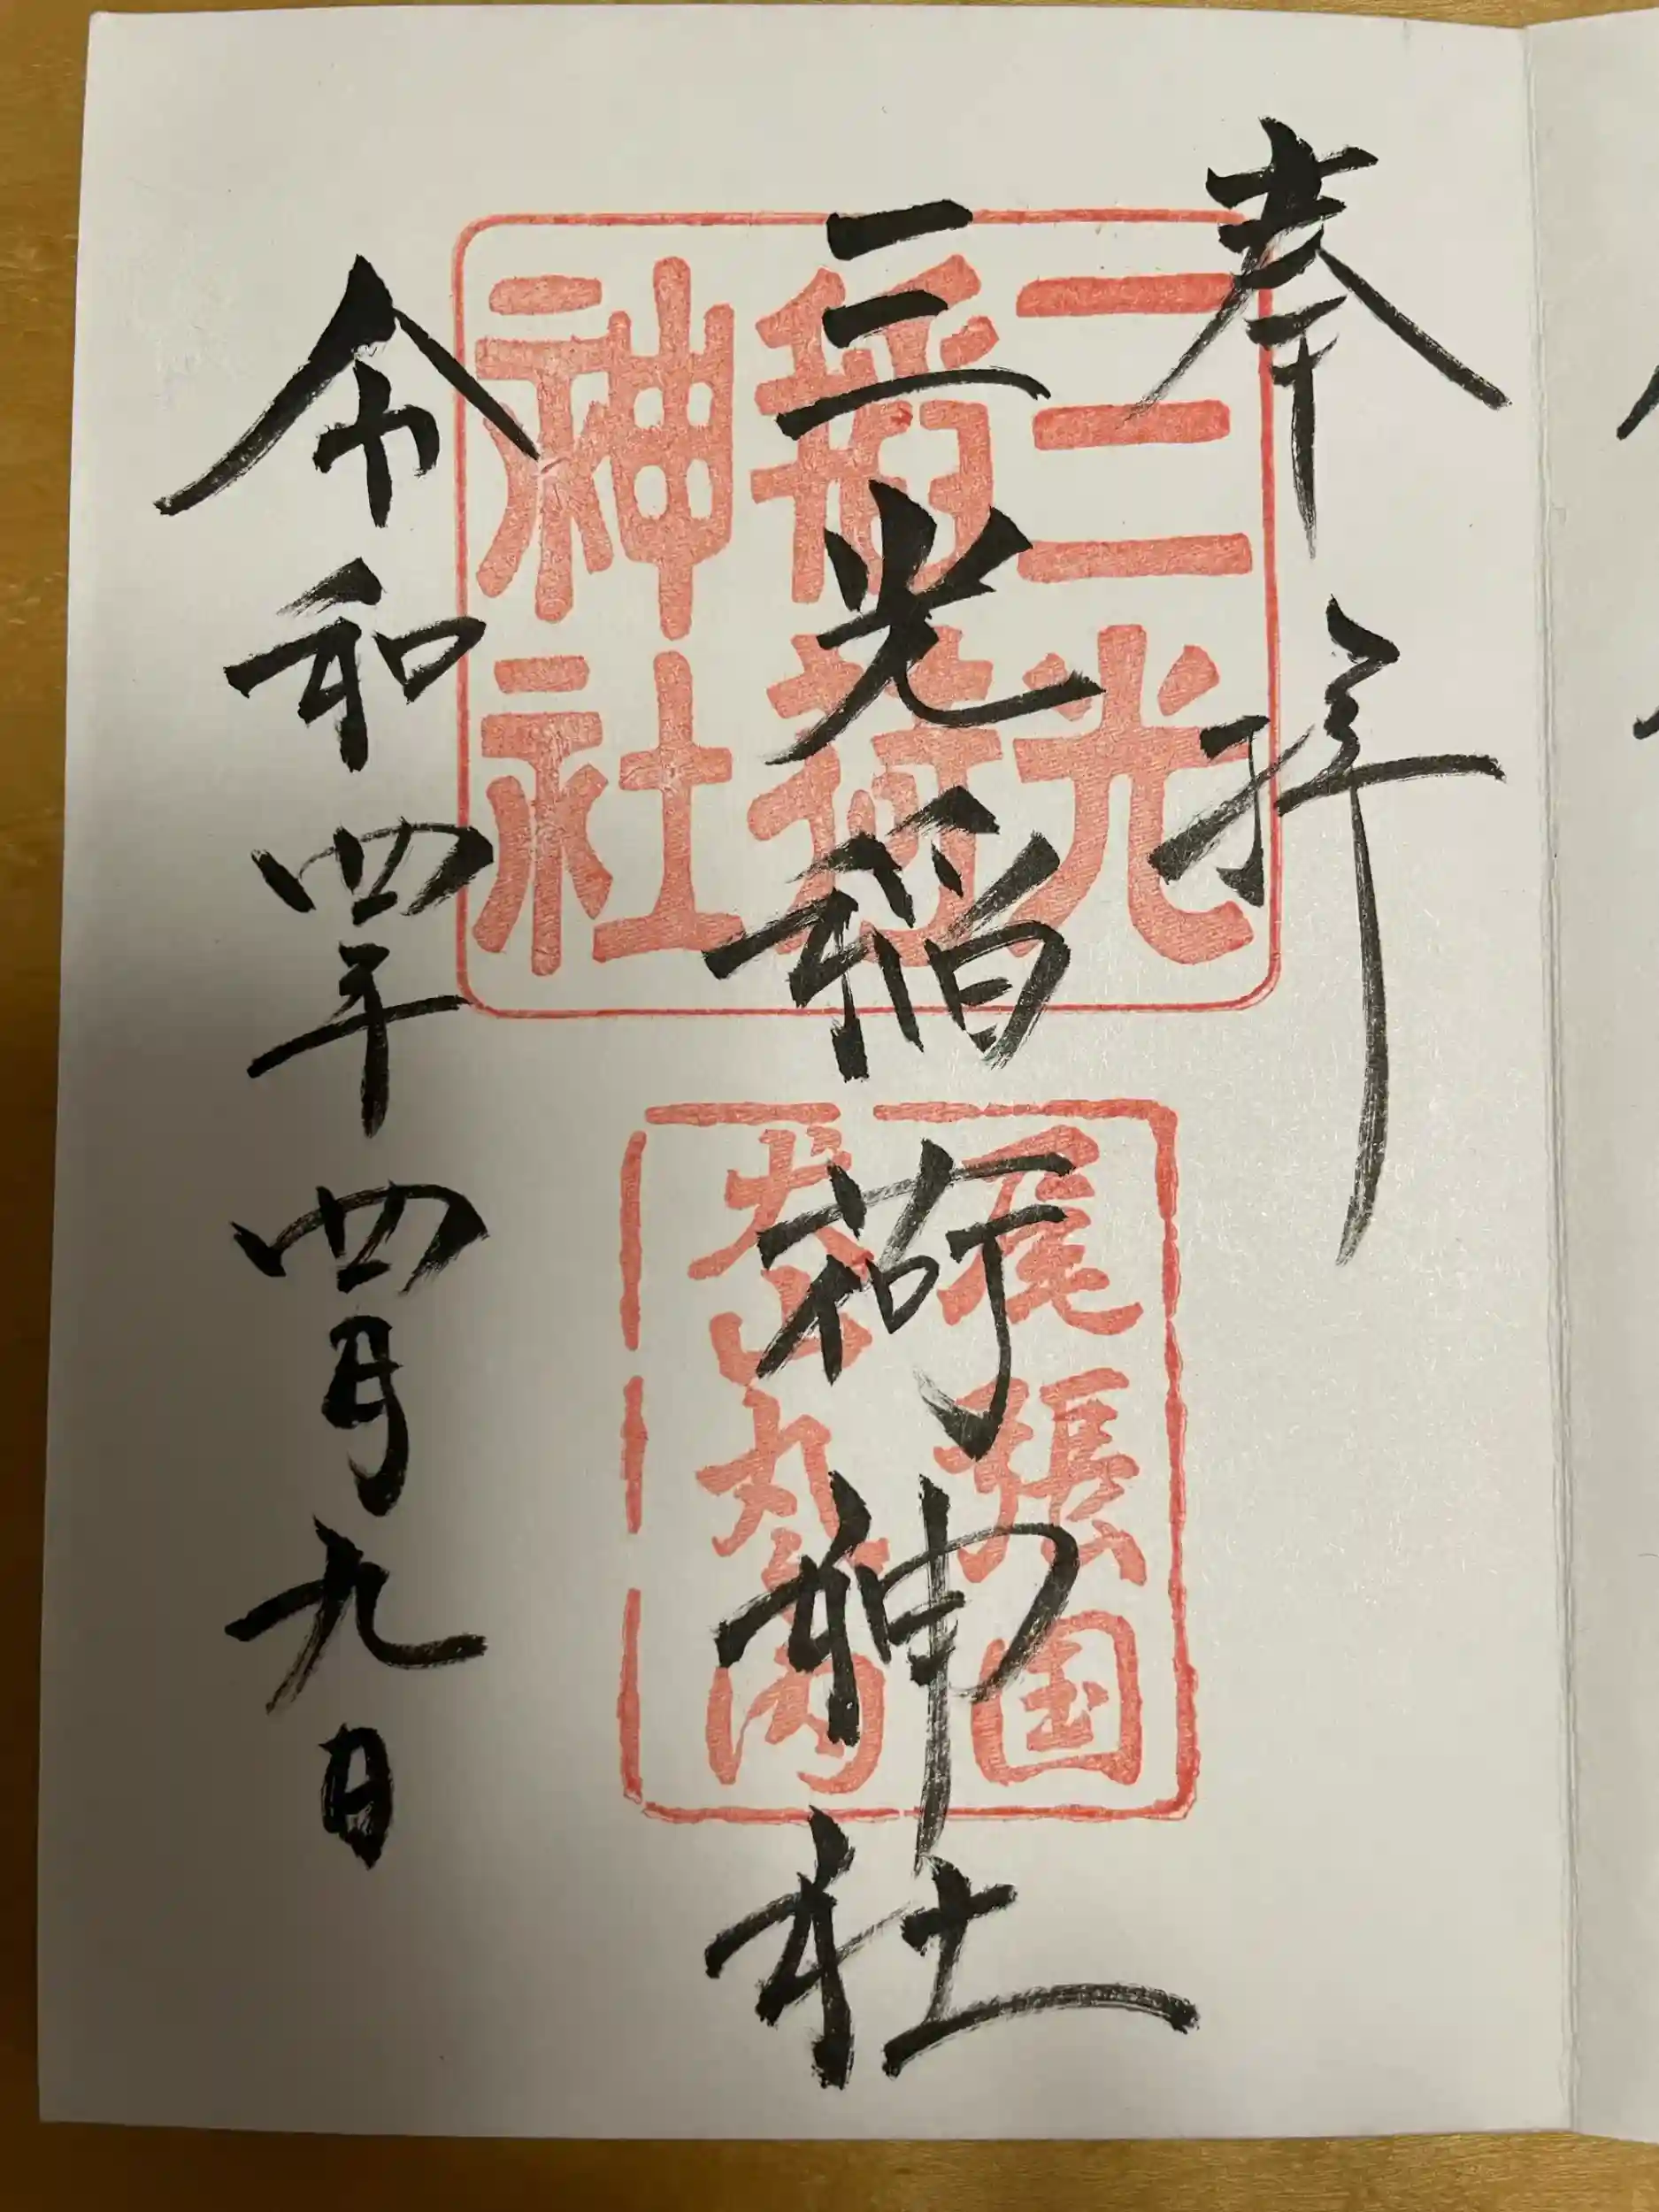 奉拝
三光稲荷神社
令和四年四月九日
三光
稲荷
神社
尾張国
犬山丸之内